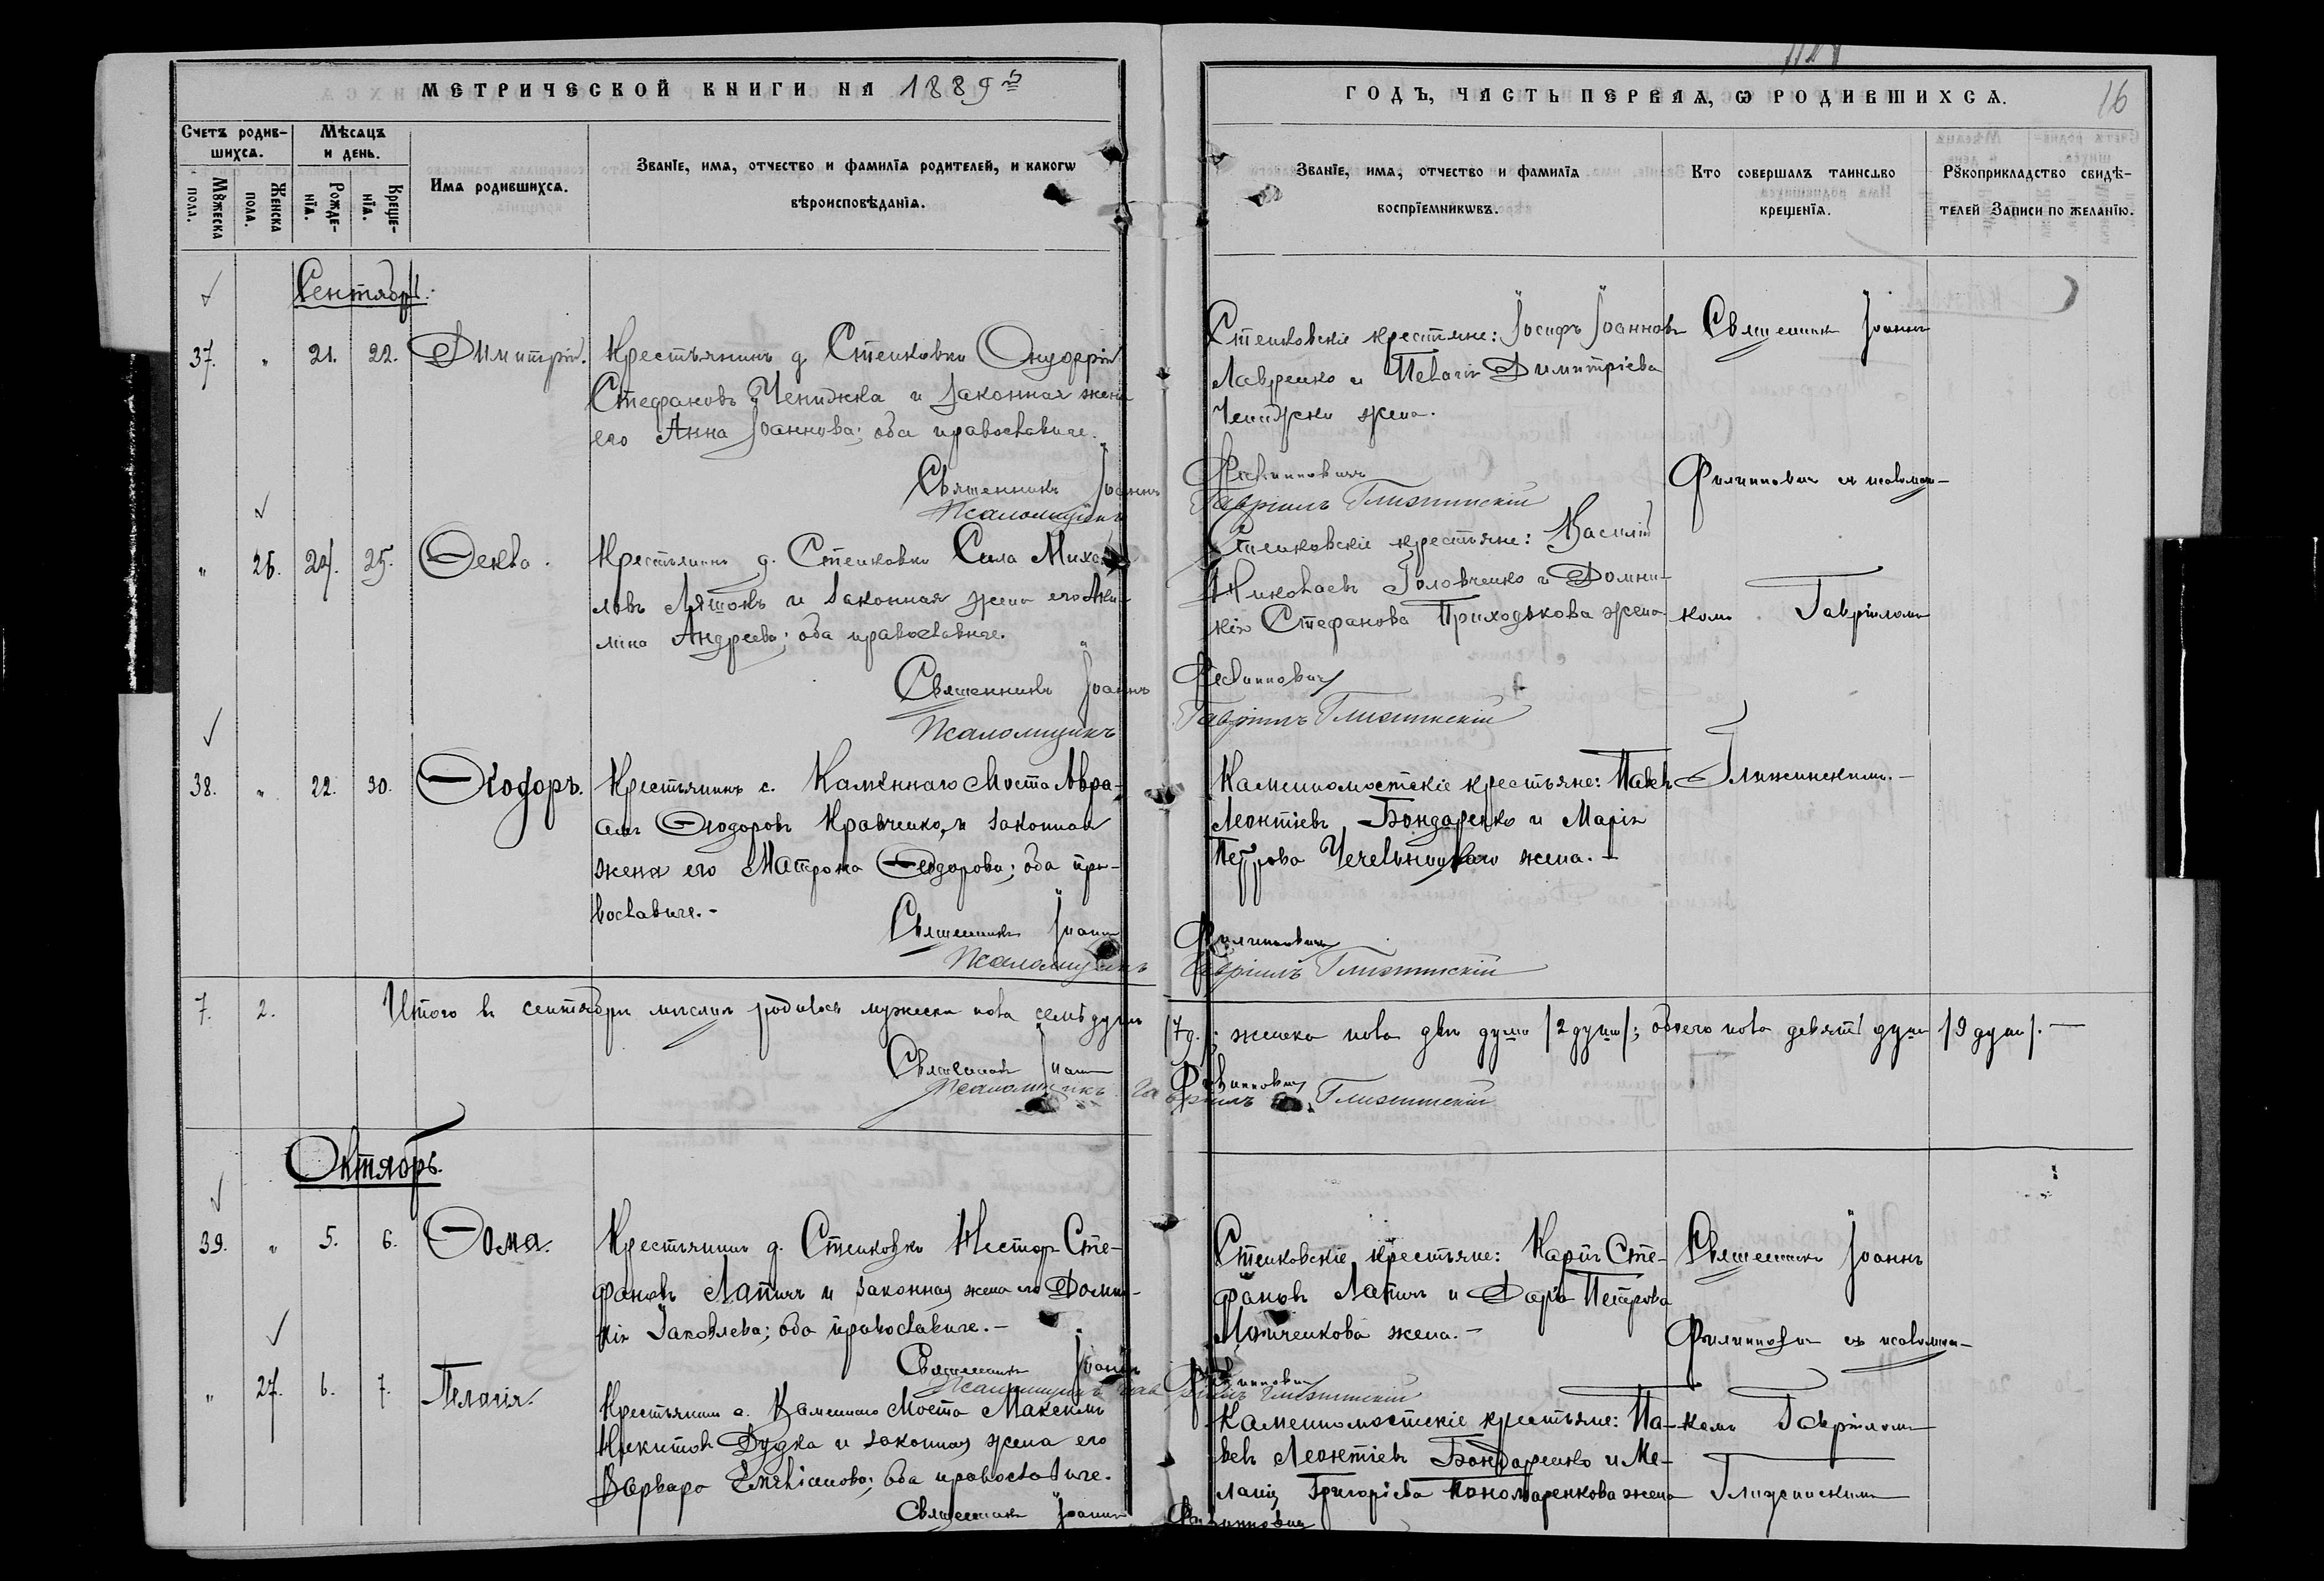 МЕТРИЧЕСКОЙ КНИГИ НА 1889 й
ГОДЪ, ЧАСТЬ ПЕРВАЯ, Ѡ РОДИВШИХСѦ.
16
Счетъ родив-
шихсѧ.
Мѣсѧцъ
и день.
Мꙋжеска
пола.
Женска
пола.
Рожде-
нїѧ.
Креще-
нїѧ.
Имѧ родившихсѧ.
Званїе, имѧ, отчество и фамилїѧ родителей, и какогѡ
вѣроисповѣданїѧ.
Званїе, имѧ, отчество и фамилїѧ
воспрїемникѡвъ.
Кто совершалъ таинство
крещенїѧ.
Рꙋкоприкладство свидѣ-
телей Записи по желанїю.
Сентябрь.
37. " 21. 22. Димитрій.
Крестьянинъ д. Стенковки
Стефановъ Ченижка и законная жена
его Анна Іоаннова; оба православные.
Священникъ Іоаннъ
Псаломщикъ
Стенковскіе крестьяне: Іосифъ Іоанновъ
Лавренко и Пелагія Димитріева
жена.
Филипповичъ
Гавріилъ Глижинскій
Священникъ Іоаннъ
Филипповичъ съ псаломщи-
" 26. 24. 25. Ѳекла.
Крестьянинъ д. Стенковки Сила Михаи-
ловъ и законная жена его Аки-
лина Андреева; оба православные.
Священникъ Іоаннъ
Псаломщикъ
Стенковскіе крестьяне: Василій
Николаевъ Головченко и Домни-
кія Стефанова Приходькова жена
Филипповичъ
Гавріилъ Глижинскій
комъ Гавріиломъ
38. " 22. 30. Ѳеодоръ.
Крестьянинъ с. Каменнаго Моста Авра-
амъ Ѳеодоровъ Кравченко, и законная
жена его Матрона Ѳеодорова; оба пра-
вославные.-
Священникъ Іоаннъ
Псаломщикъ
Каменномостскіе крестьяне: Павелъ
Леонтіевъ Бондаренко и Марія
Петрова Чечельницкаго жена.-
Филипповичъ
Гавріилъ Глижинскій
Глижинскимъ.-
7. 2. Итого въ сентябрѣ мѣсяцѣ родилось мужеска пола семь душъ
/7 д./; женска пола двѣ души /2 души/; обоего пола девять душъ /9 душъ/.-
Священникъ Іоаннъ Филипповичъ
Псаломщикъ Гавріилъ Глижинскій
Октябрь.
39. " 5. 6. Ѳома.
Крестьянинъ д. Стенковки Несторъ Сте-
фановъ Лапичъ и законная жена его Домни-
кія Іаковлева; оба православные.-
Священникъ Іоаннъ
Псаломщикъ Гав
Стенковскіе крестьяне: Карпъ Сте-
фановъ Лапичъ и Дарія Петрова
жена.-
Филипповичъ
ріилъ Глижинскій
Священникъ Іоаннъ
Филипповичъ съ псаломщи-
" 27. 6. 7. Пелагія.
Крестьянинъ с. Каменнаго Моста Максимъ
Никитовъ Дудка и законная жена его
Варвара Емиліанова; оба православные.
Священникъ Іоаннъ
Каменномостскіе крестьяне: Па-
велъ Леонтіевъ Бондаренко и Ме-
ланія Григоріева Пономаренкова жена
Филипповичъ
комъ Гавріиломъ
Глижинскимъ